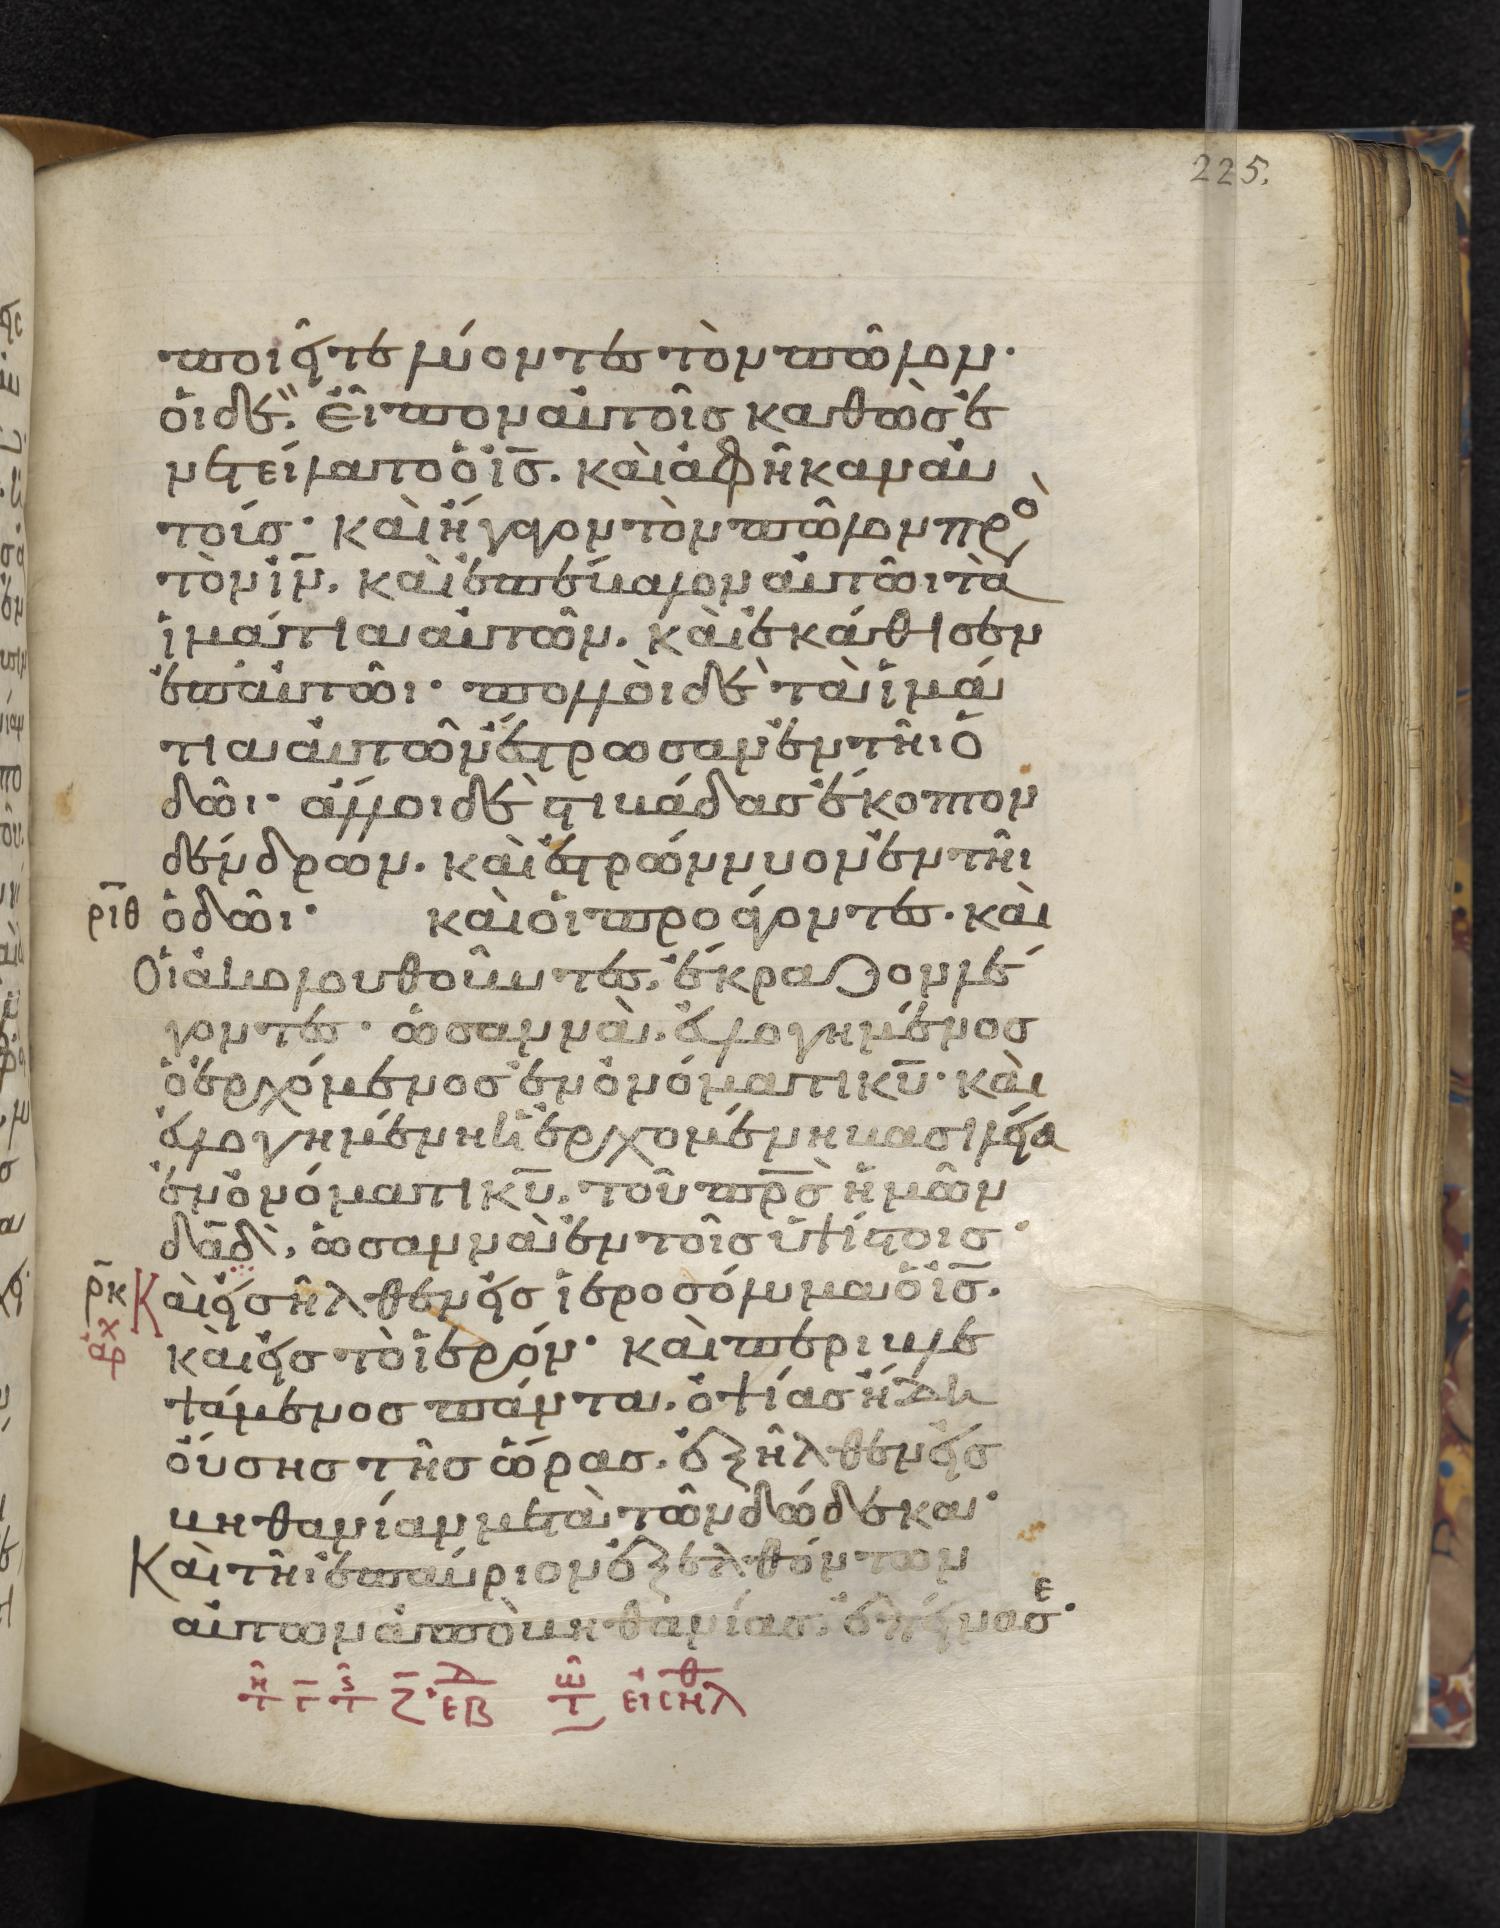 225.
ποιεῖτε λύοντες τὸν πῶλον·
οἱ δὲ, εἶπον αὐτοῖς καθὼς ἐ
νετείλατο ὁ ἰς̅. καὶ ἀφῆκαν αὐ
τοίς· καὶ ἤγαγον τὸν πῶλον πρὸ
τὸν ἰν̅. καὶ ἐπέβαλον αὐτῶι τὰ
ἱμάτια αὐτῶν. καὶ ἐκάθισεν
ἐπ' αὐτῶι· πολλοὶ δὲ τὰ ἱμά
τια αὐτῶν ἔστρωσαν ἐν τῆι ὁ
δῶι· ἄλλοι δὲ στιβάδασ ἔκοπτον
δένδρων. καὶ ἐστρώννυον ἐν τῆι
ρ̅ι̅θ ὁδῶι· καὶ οἱ προάγοντες. καὶ
Οἱ ἀκολουθοῦντες. ἔκραζον λέ
γοντες· ὡσαννὰ. εὐλογημένοσ
ὁ ἐρχόμενοσ ἐν ὀνόματι κυ̅· καὶ
εὐλογημένη ἡ ἐρχομένη βασιλεία
ἐν ὀνόματι κυ̅. τοῦ πρ̅σ ἡμῶν
δα̅δ. ὡσαννὰ ἐν τοῖσ ὑψίστοισ·
ρ̅κ Καὶ εἰσῆλθεν εἰσ ἱεροσόλυμα ὁ ἰς̅.
ἀρχ καὶ εἰσ τὸ ἱερόν· καὶ περιβλε
ψάμενοσ πάντα. ὀψίασ ἤδη
οὔσησ τῆσ ὥρασ. ἐξῆλθεν εἰσ
βηθανίαν μετὰ τῶν δώδεκα·
Καὶ τῆι ἐπαύριον ἐξελθόντων
αὐτων ἀπὸ βηθανίασ. ἐπείνασε·
τῆ γ̅ τῆ ς̑ ζ̅· ἑβδ τῶ εἰσηλθ